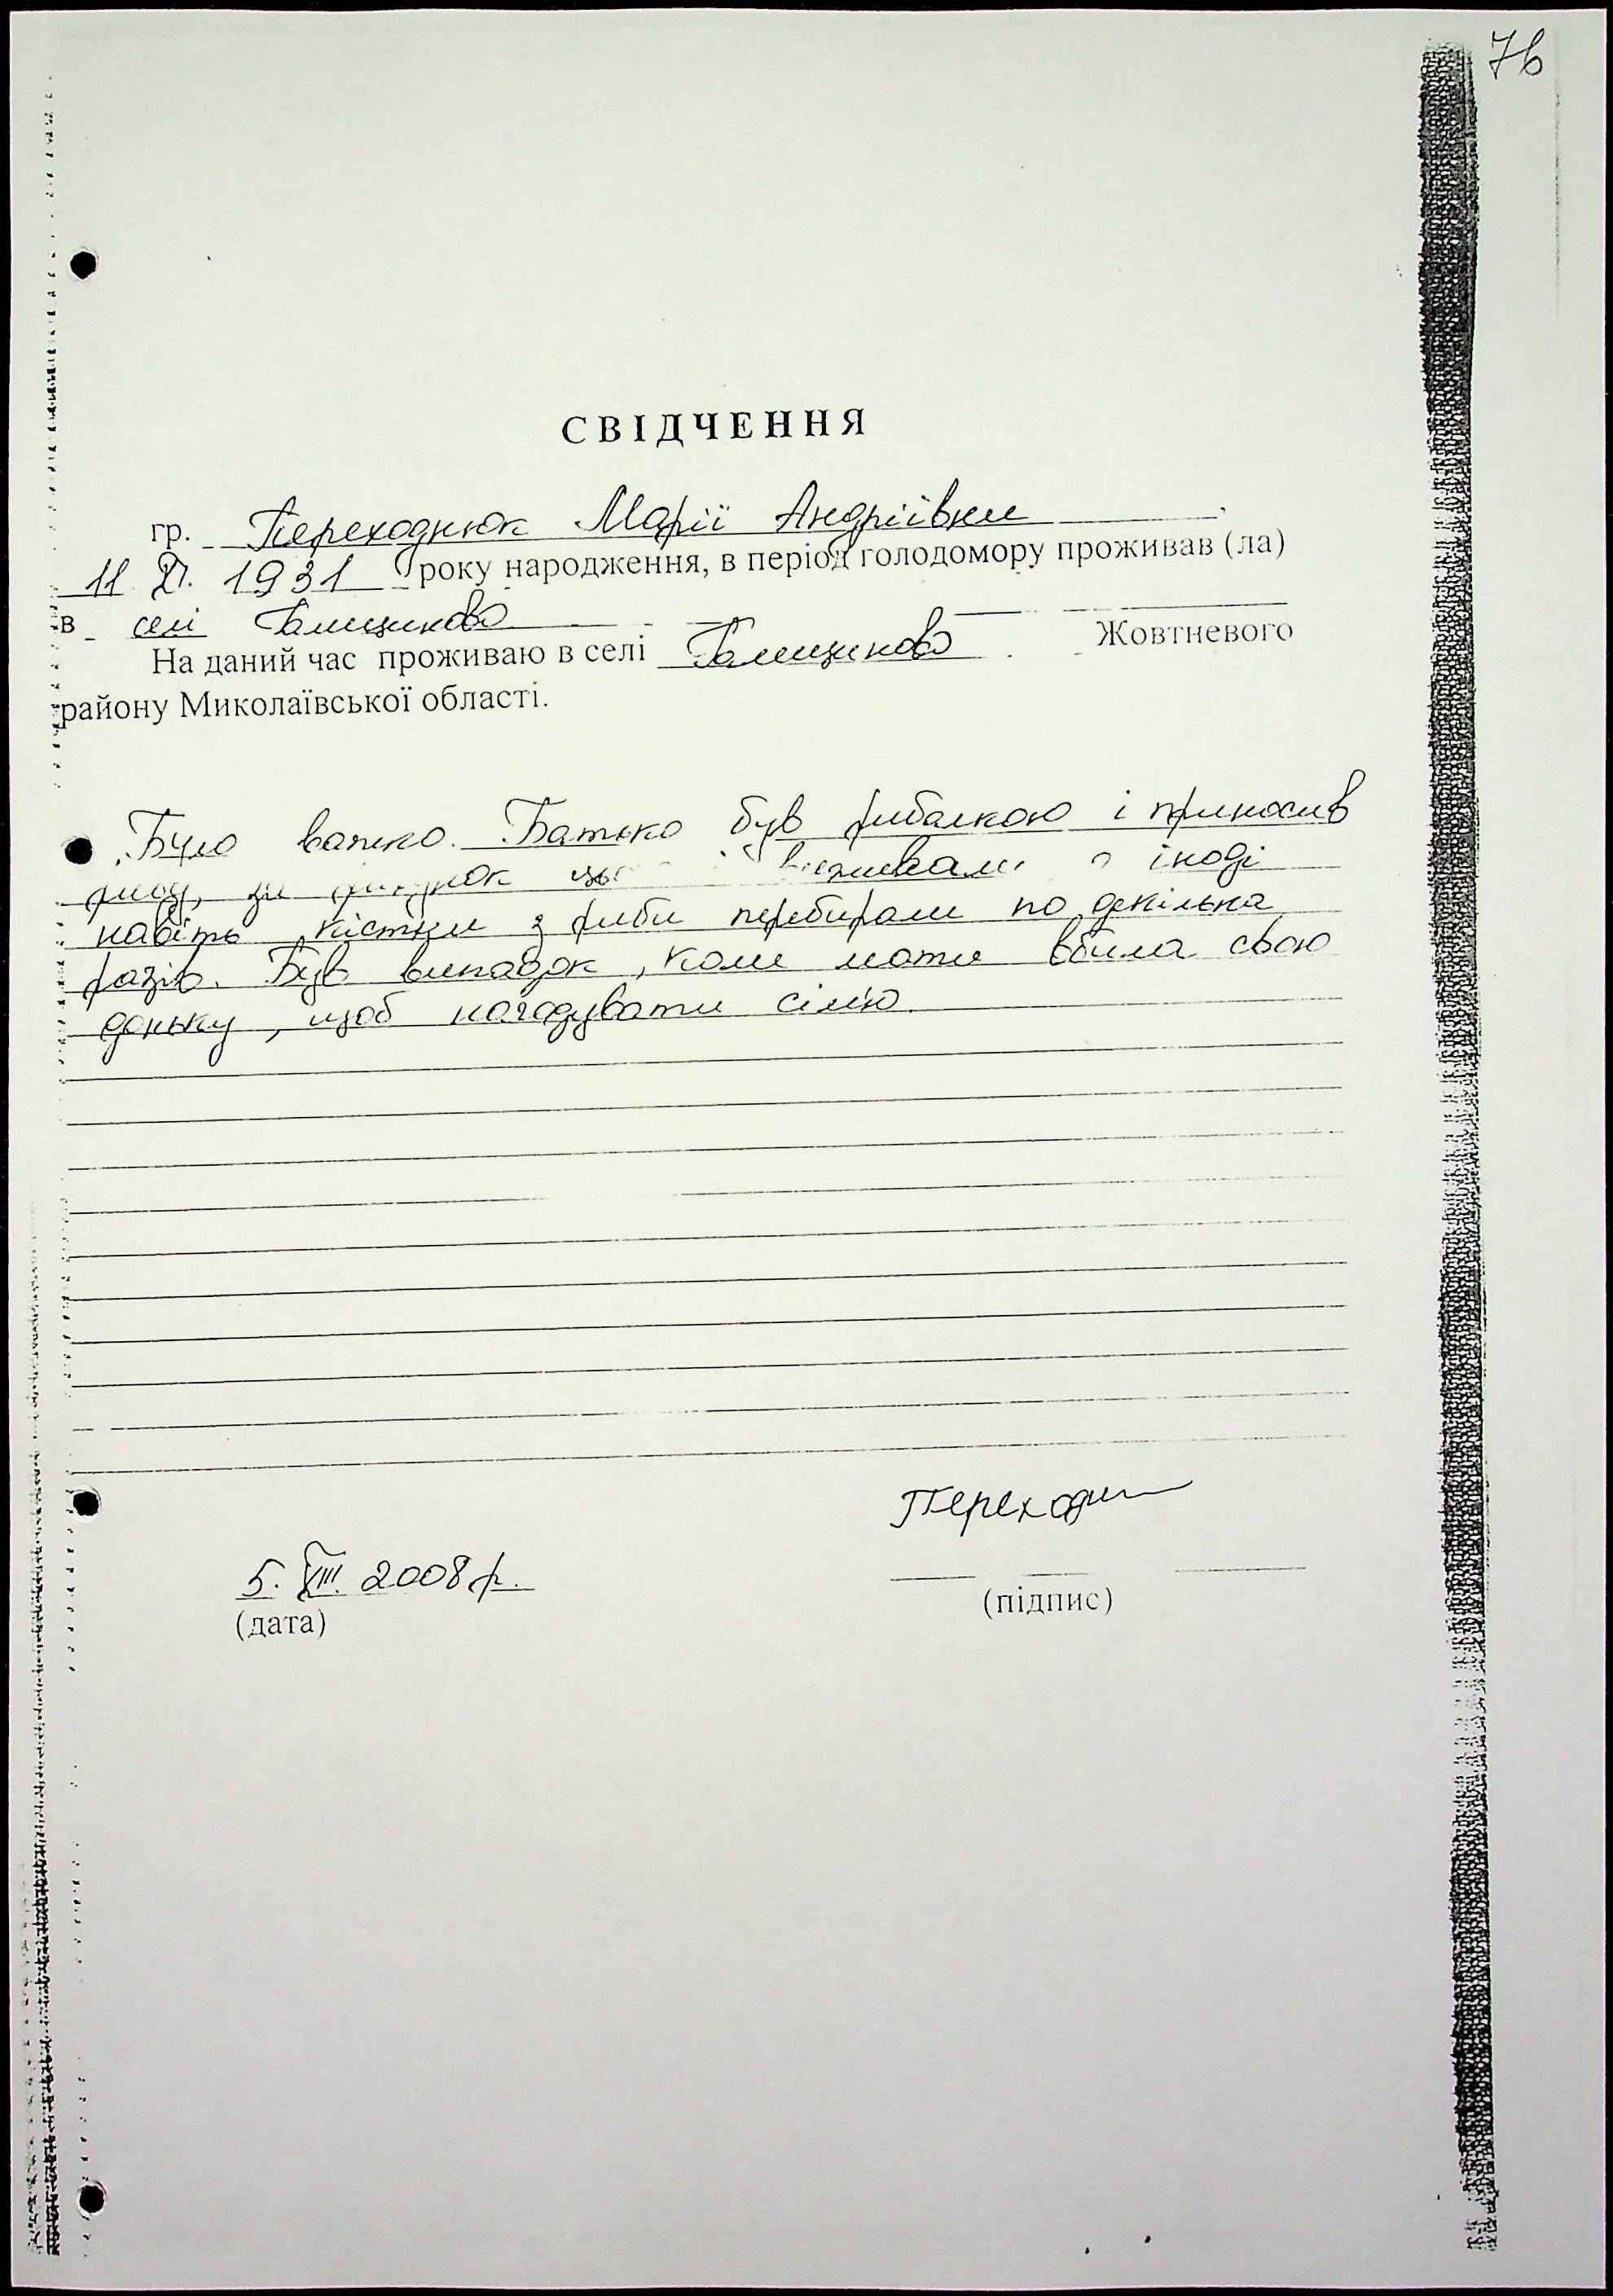 76
СВІДЧЕННЯ
гр. Переходнюк Марії Андріївни
11. 1931 року народження, в період голодомору проживав (ла)
в селі Галициново
На даний час проживаю в селі Галициново Жовтневого
району Миколаївської області.
Було важко. Батько був рибалкою і приносив
рибу, за рахунок виживали іноді
навіть кістки з риби перебирали по декілька
разів. Був випадок, коли мати вбила свою
доньку, щоб нагодувати сім'ю.
5. VIII. 2008 р.
(дата)
(підпис)